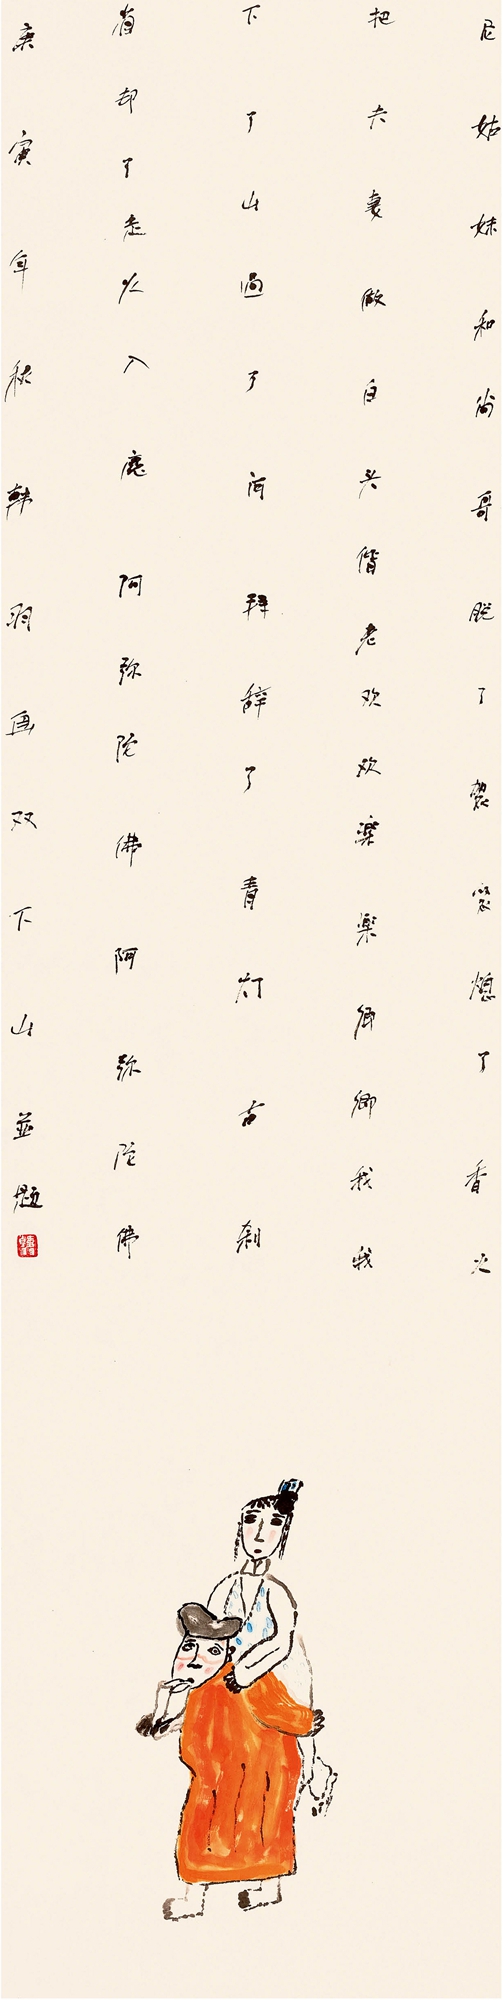 尼姑妹和尚哥脱了袈裟熄了香火
把夫妻做白头偕老欢欢樂樂卿卿我我
下了山過了河拜辞了青灯古刹
省却了走火入魔阿弥陀佛阿弥陀佛
庚寅年秋韩羽画双下山並题